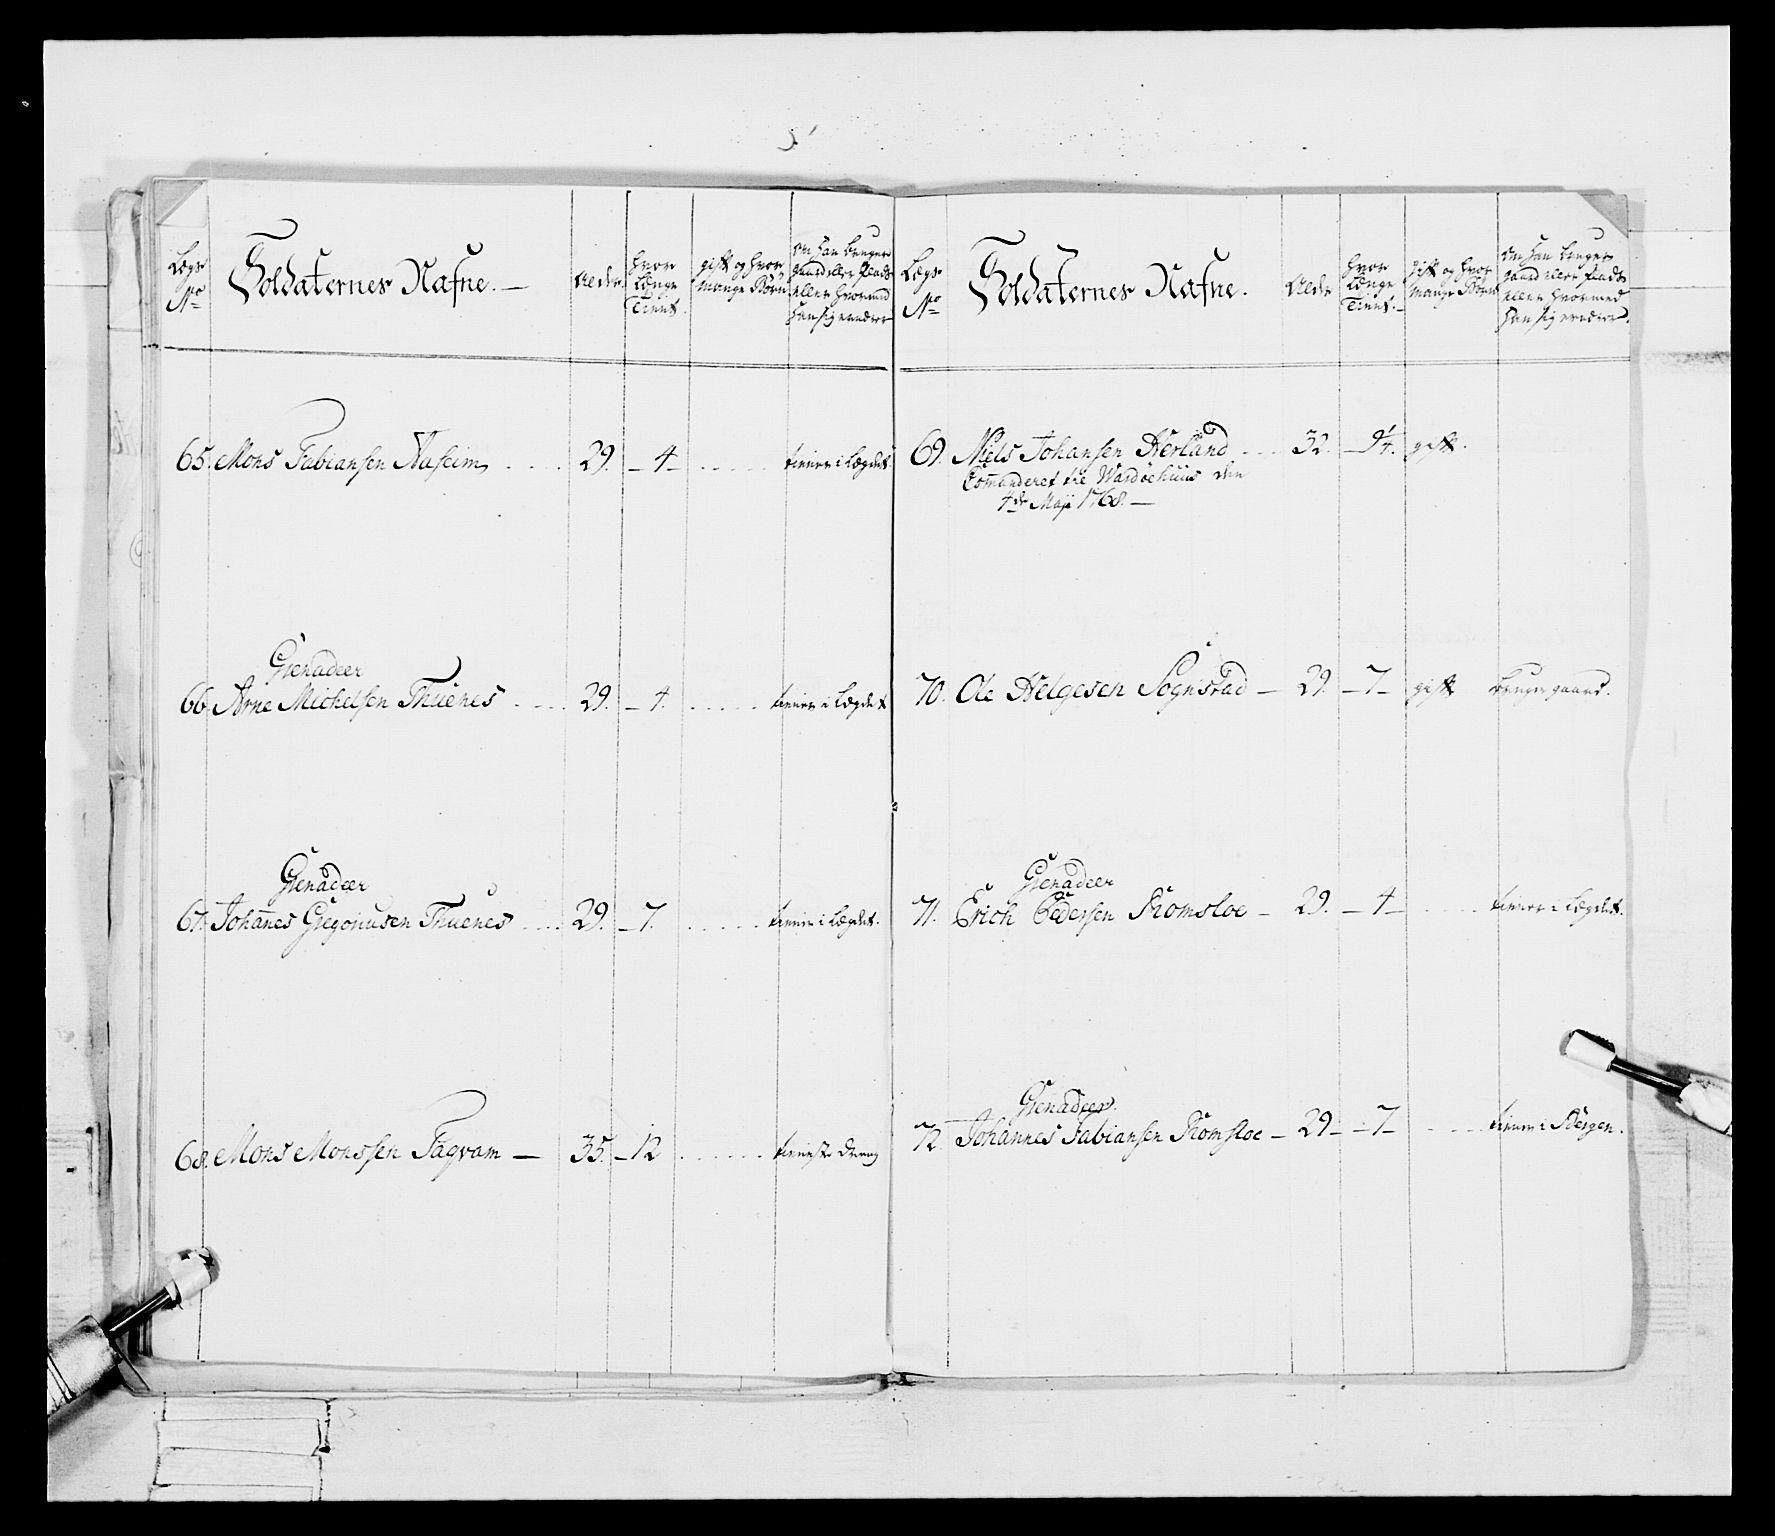 Lægs No
Soldaternes Nafne.
Alder.
hvor Længe Tient.
gift og hvor mange Børn
om han bruger gaard eller Plads eller hvormed han sig ernærer
65. Mons Fabiansen Aaseim 29. 4 tiener i Lægdet.
Grenadeer
66. Arne Michelsen Thuenes 29. 4. tiener i Lægdet
Grenadeer
67. Johannes Gregoriusen Thuenes 29. 7. tiener i Lægdet.
68. Mons Monssen Fagvam 35. 12 tieneste Dreng
Lægs No
Soldaternes Nafne.
Alder
hvor Længe Tient.
gift og hvor mange Børn
om han bruger gaard eller Plads eller hvormed han sig ernærer.
69. Niels Johansen Herland 32. 9 1/4. gift.
Comanderet til Wardøehuus den
4de Maji 1768.
70. Ole Helgesen Sognstad 29. 7 gift bruger gaard.
Grenadeer
71. Erich Pedersen Romsloe 29. 4 tiener i Lægdet.
Grenadeer.
72 Johannes Fabiansen Romsloe 29 7 tiener i Bergen.